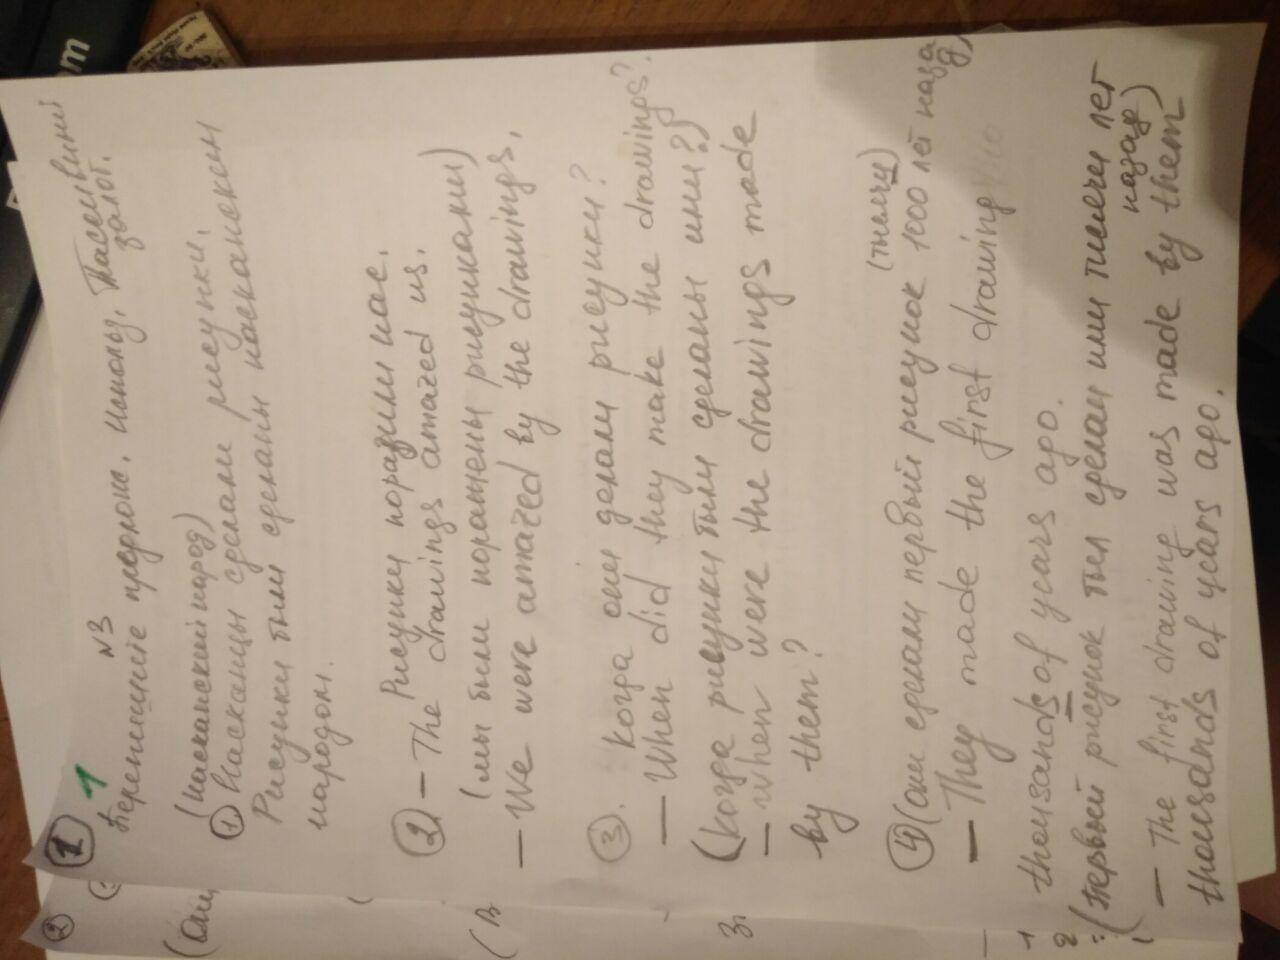 1
1
№3
Перепишите предлож. использ. Пассивный залог.
(насканский народ)
① Насканцы сделали рисунки.
Рисунки были сделаны насканским
народом.
② Рисунки поразили нас.
– The drawings amazed us.
(мы были поражены рисунками)
– We were amazed by the drawings.
③. Когда они делали рисунки?
– When did they make the drawings?
(когда рисунки были сделаны ими?)
– when were the drawings made
by them?
(тысячи)
④ (они сделали первый рисунок 1000 лет назад)
– They made the first drawing
thousands of years ago.
(первый рисунок был сделан ими тысячи лет назад)
– The first drawing was made by them
thousands of years ago.
2
(Они
(В